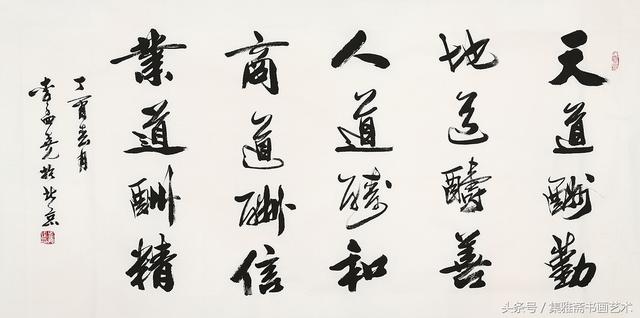 天道酬勤
地道醻善
人道醻和
商道酬信
業道酬精
丁酉春月
李孟尧於北京
头条号 / 集雅斋书画艺术